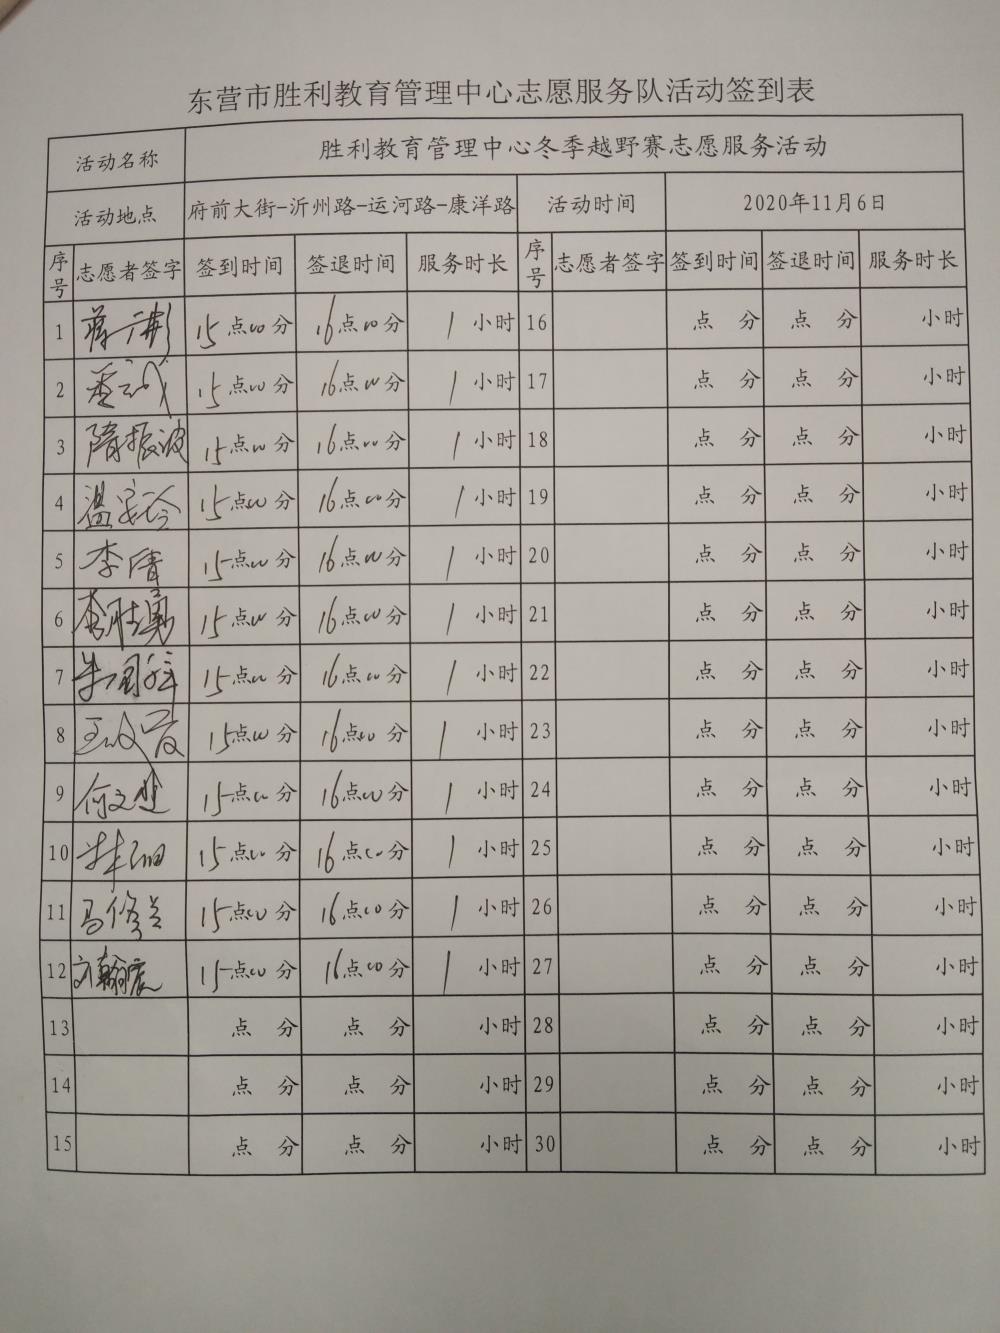 东营市胜利教育管理中心志愿服务队活动签到表
活动名称 胜利教育管理中心冬季越野赛志愿服务活动
活动地点 府前大街-沂州路-运河路-康洋路 活动时间 2020年11月6日
序号 志愿者签字 签到时间 签退时间 服务时长 序号 志愿者签字 签到时间 签退时间 服务时长
1 15点00分 16点00分 1小时 16 点 分 点 分 小时
2 15点00分 16点00分 1小时 17 点 分 点 分 小时
3 隋振波 15点00分 16点00分 1小时 18 点 分 点 分 小时
4 温 15点00分 16点00分 1小时 19 点 分 点 分 小时
5 李倩 15点00分 16点00分 1小时 20 点 分 点 分 小时
6 李胜勇 15点00分 16点00分 1小时 21 点 分 点 分 小时
7 15点00分 16点00分 1小时 22 点 分 点 分 小时
8 王 15点00分 16点00分 1小时 23 点 分 点 分 小时
9 何文 15点00分 16点00分 1小时 24 点 分 点 分 小时
10 15点00分 16点00分 1小时 25 点 分 点 分 小时
11 马修兰 15点00分 16点00分 1小时 26 点 分 点 分 小时
12 刘翰宸 15点00分 16点00分 1小时 27 点 分 点 分 小时
13 点 分 点 分 小时 28 点 分 点 分 小时
14 点 分 点 分 小时 29 点 分 点 分 小时
15 点 分 点 分 小时 30 点 分 点 分 小时